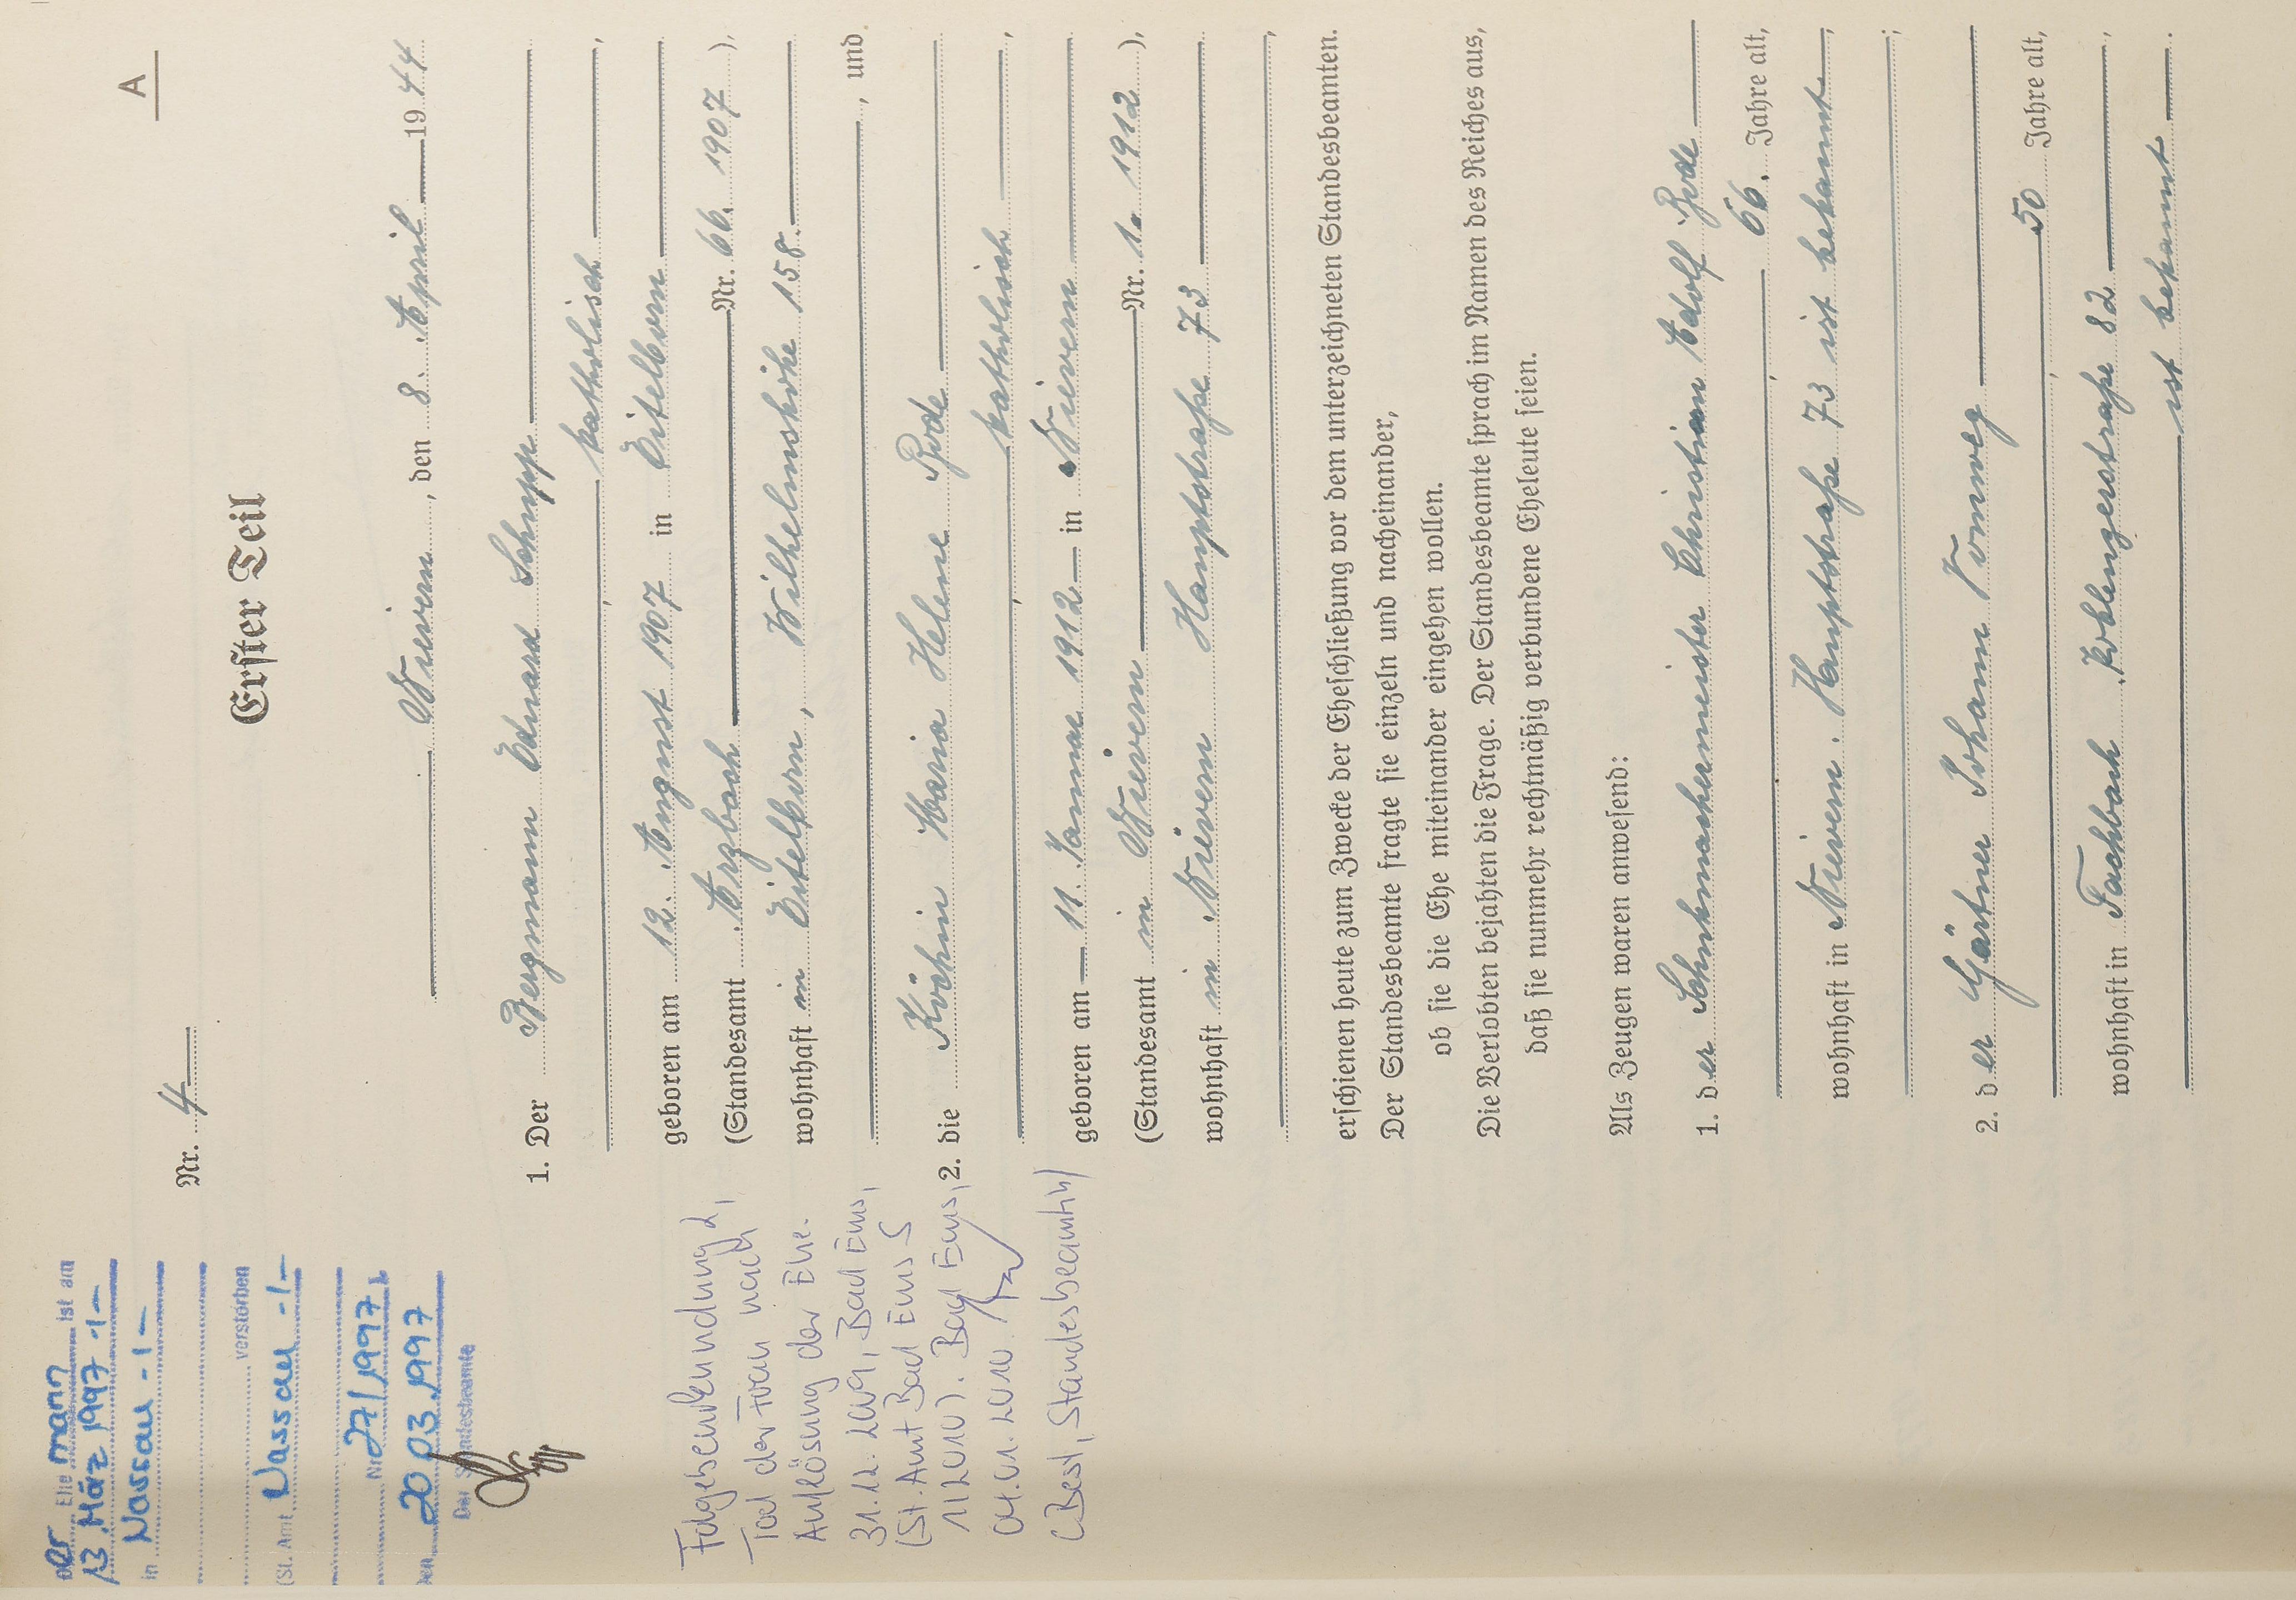 A
Nr. 4
Erster Teil
Nievern, den 8. April 1944
1. Der Bergmann Eduard Schupp
katholisch,
geboren am 12. August 1907 in Eitelborn
(Standesamt Arzbach Nr. 66. 1907 ),
wohnhaft in Eitelborn, Wilhelmshöhe 158.
, und
2. die Köchin Maria Helene Rode
katholisch,
geboren am 11. Januar 1912 in Nievern
(Standesamt in Nievern Nr. 1. 1912 ),
wohnhaft in Nievern Hauptstraße 73
,
erschienen heute zum Zwecke der Eheschließung vor dem unterzeichneten Standesbeamten.
Der Standesbeamte fragte sie einzeln und nacheinander,
ob sie die Ehe miteinander eingehen wollen.
Die Verlobten bejahten die Frage. Der Standesbeamte sprach im Namen des Reiches aus,
daß sie nunmehr rechtmäßig verbundene Eheleute seien.
Als Zeugen waren anwesend:
1. der Schuhmachermeister Christian Adolf Rode
, 66. Jahre alt,
wohnhaft in Nievern. Hauptstraße 73 ist bekannt,
;
2. der Gärtner Johann Vomweg
, 50 Jahre alt,
wohnhaft in Fachbach Koblenzerstraße 82,
ist bekannt.
Der Ehemann ist am
13. März 1997 -/-
in Nassau -/-
verstorben
(St. Amt Nassau -/-
Nr. 27/1997)
Den 20.03.1997
Der Standesbeamte
Folgebeurkundung 2,
Tod der Frau nach
Auflösung der Ehe.
31.12.2009, Bad Ems,
(St. Amt Bad Ems S
1/2010). Bad Ems,
04.01.2010
(Best, Standesbeamtin)